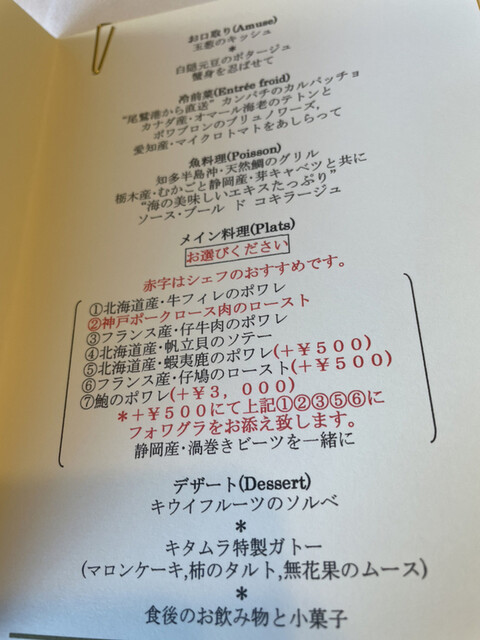 お口取り(Amuse)
玉葱のキッシュ
*
白隠元豆のポタージュ
蟹身を忍ばせて
冷前菜(Entrée froid)
“尾鷲港から直送” カンパチのカルパッチョ
カナダ産・オマール海老のテトンと
ポワブロンのブリュノワーズ,
愛知産・マイクロトマトをあしらって
魚料理(Poisson)
知多半島沖・天然鯛のグリル
栃木産・むかごと静岡産・芽キャベツと共に
“海の美味しいエキスたっぷり”
ソース・ブール ド コキラージュ
メイン料理(Plats)
お選びください
赤字はシェフのおすすめです。
①北海道産・牛フィレのポワレ
②神戸ポークロース肉のロースト
③フランス産・仔牛肉のポワレ
④北海道産・帆立貝のソテー
⑤北海道産・蝦夷鹿のポワレ(+¥500)
⑥フランス産・仔鳩のロースト(+¥500)
⑦鮑のポワレ(+¥3, 000)
*+¥500にて上記①②③⑤⑥に
フォワグラをお添え致します。
静岡産・渦巻きビーツを一緒に
デザート(Dessert)
キウイフルーツのソルベ
*
キタムラ特製ガトー
(マロンケーキ,柿のタルト,無花果のムース)
*
食後のお飲み物と小菓子